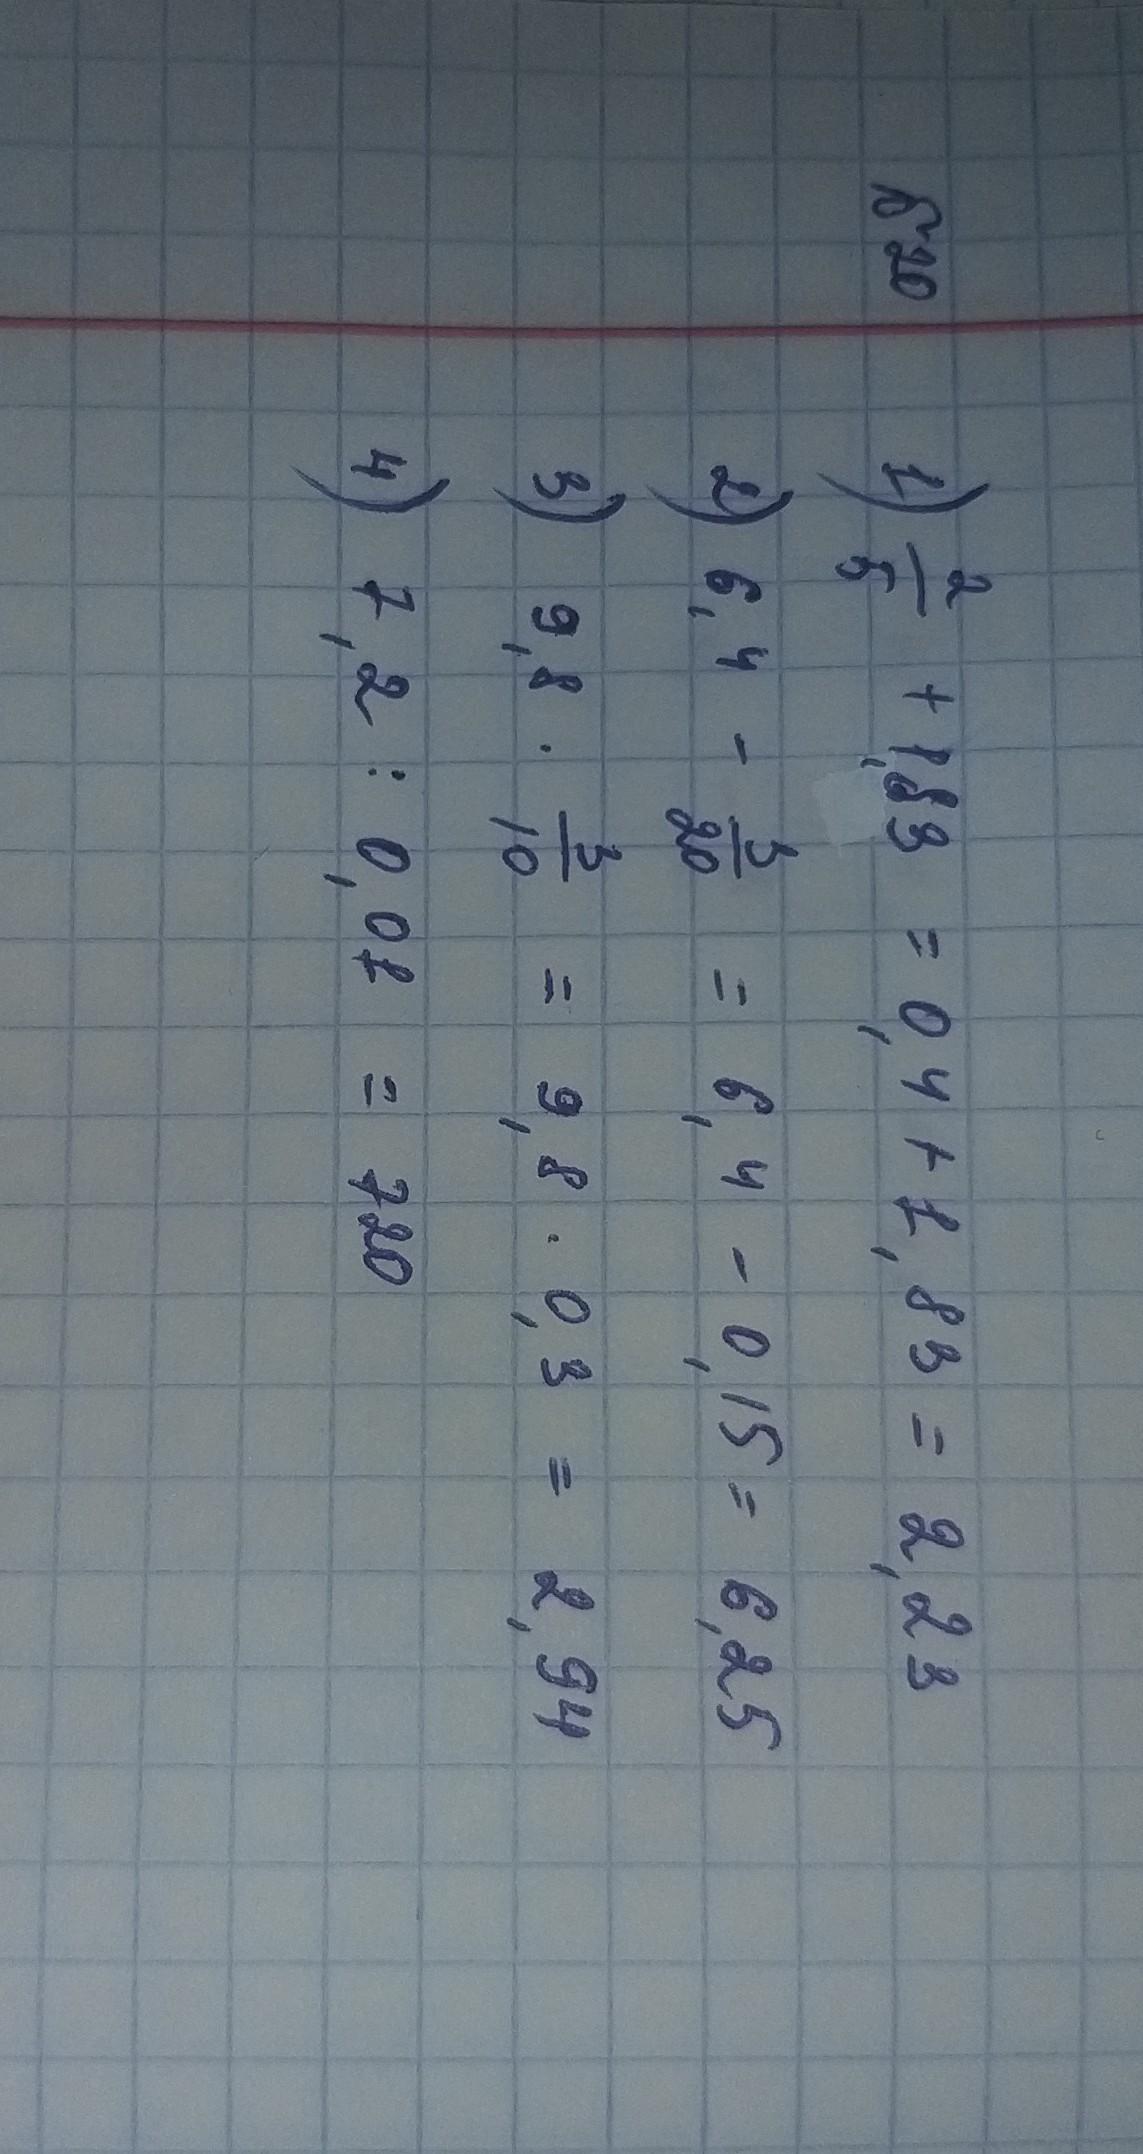 №20
1) 2/5 + 1,83 = 0,4 + 1,83 = 2,23
2) 6,4 - 3/20 = 6,4 - 0,15 = 6,25
3) 9,8 · 3/10 = 9,8 · 0,3 = 2,94
4) 7,2 : 0,01 = 720